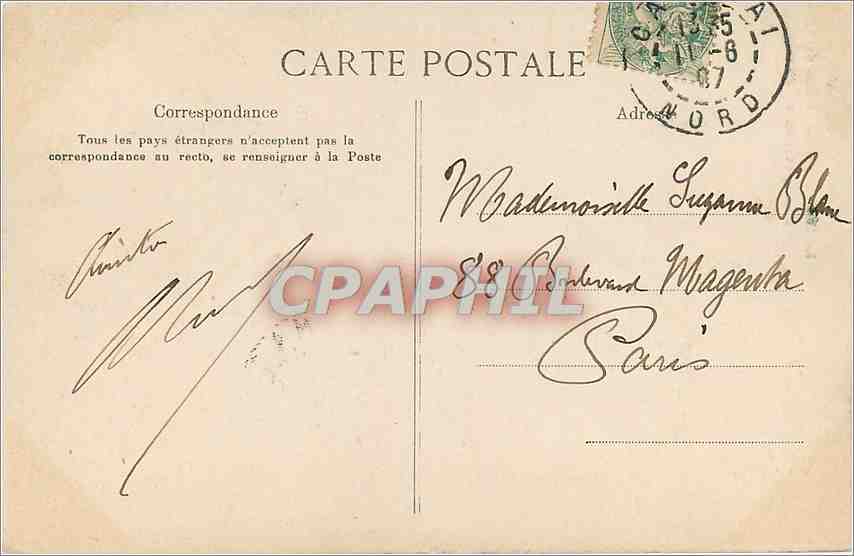 CARTE POSTALE
Correspondance
Tous les pays étrangers n'acceptent pas la
correspondance au recto, se renseigner à la Poste
Adresse
Mademoiselle Suzanne Blanc
88 Boulevard Magenta
Paris
CPAPHIL
13 35
11 - 8
07
NORD